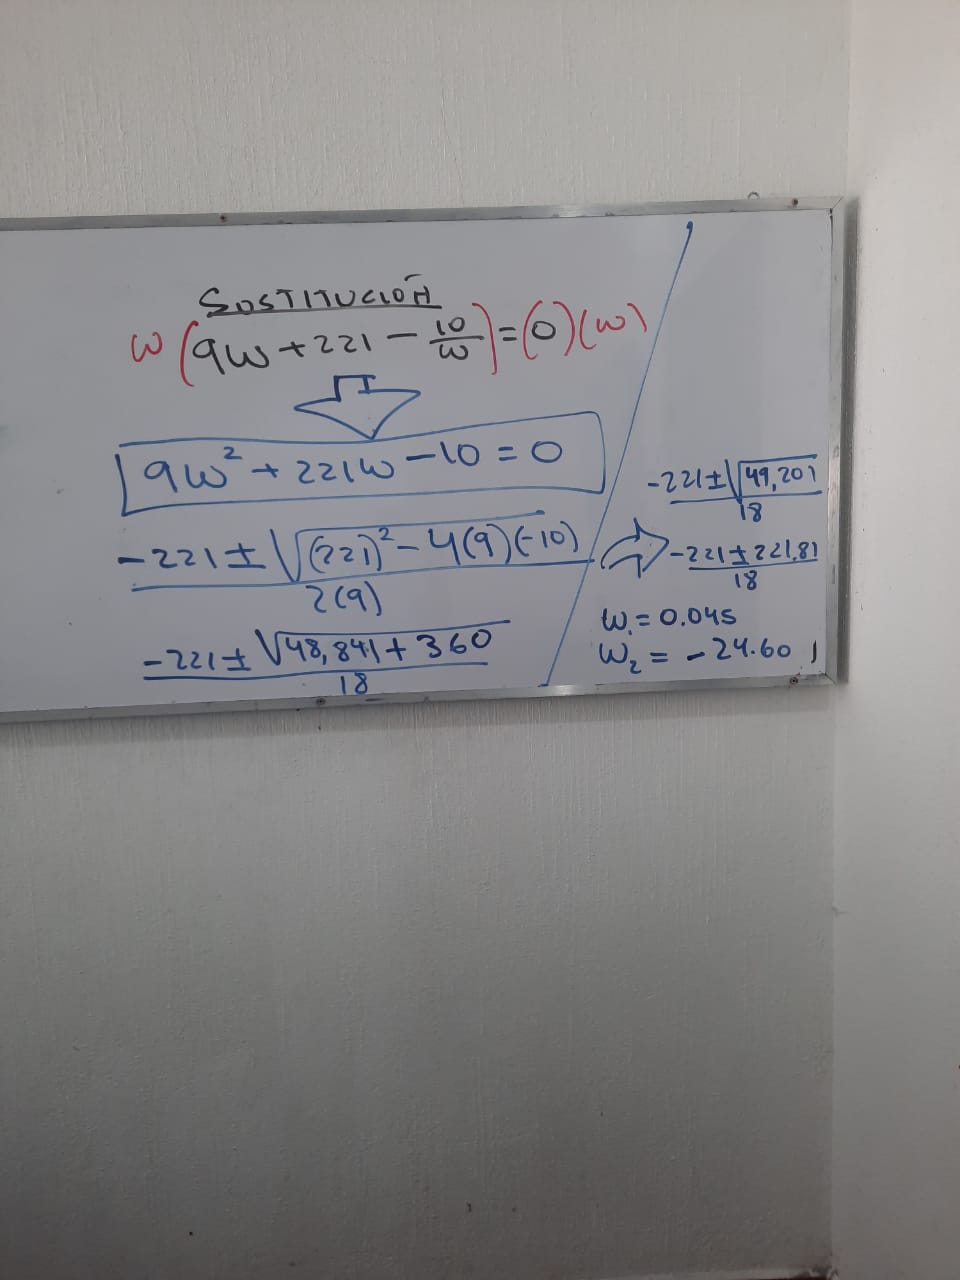 SUSTITUCIÓN
w(9w+221-10/w)=(0)(w)
9w²+221w-10=0
-221±√(221)²-4(9)(-10)
2(9)
-221±√48,841+360
18
-221±√49,201
18
-221±221.81
18
w₁=0.045
w₂=-24.60